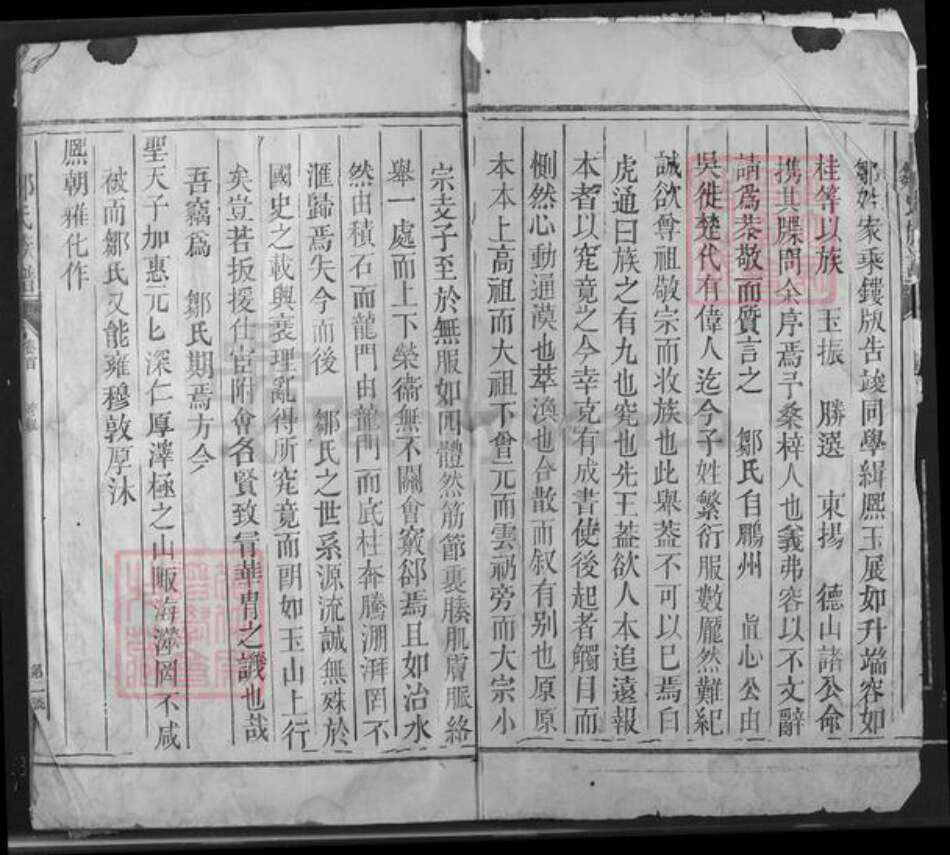 鄒姓家乘鏤版告竣同學緝熙玉展如升端容如
桂等以族 玉振 勝選 東揚 德山諸公命
攜其牒問余序焉予桑梓人也義弗容以不文辭
請爲恭敬而質言之 鄒氏自鵬州 眞心公由
吳徙楚代有偉人迄今子姓繁衍服數龐然難紀
誠欲尊祖敬宗而收族也此舉葢不可以已焉白
虎通曰族之有九也究也先王葢欲人本追遠報
本者以究竟之今幸克有成書使後起者觸目而
惻然心動通漠也萃渙也合散而叙有别也原原
本本上高祖而大祖下曾元而雲礽旁而大宗小
宗支子至於無服如四體然筋節裏腠肌膚脈絡
舉一處而上下榮衛無不關會窾郤焉且如治水
然由積石而龍門由龍門而底柱奔騰淜湃罔不
滙歸焉失今而後 鄒氏之世系源流誠無殊於
國史之載與衰理亂得所究竟而朗如玉山上行
矣豈若扳援仕宦附會各賢致官華胄之譏也哉
吾竊爲 鄒氏期焉方今
聖天子加惠元匕深仁厚澤極之山陬海澨罔不咸
被而鄒氏又能雍穆敦厚沐
熈朝雅化作
氏族譜
卷首
第一號